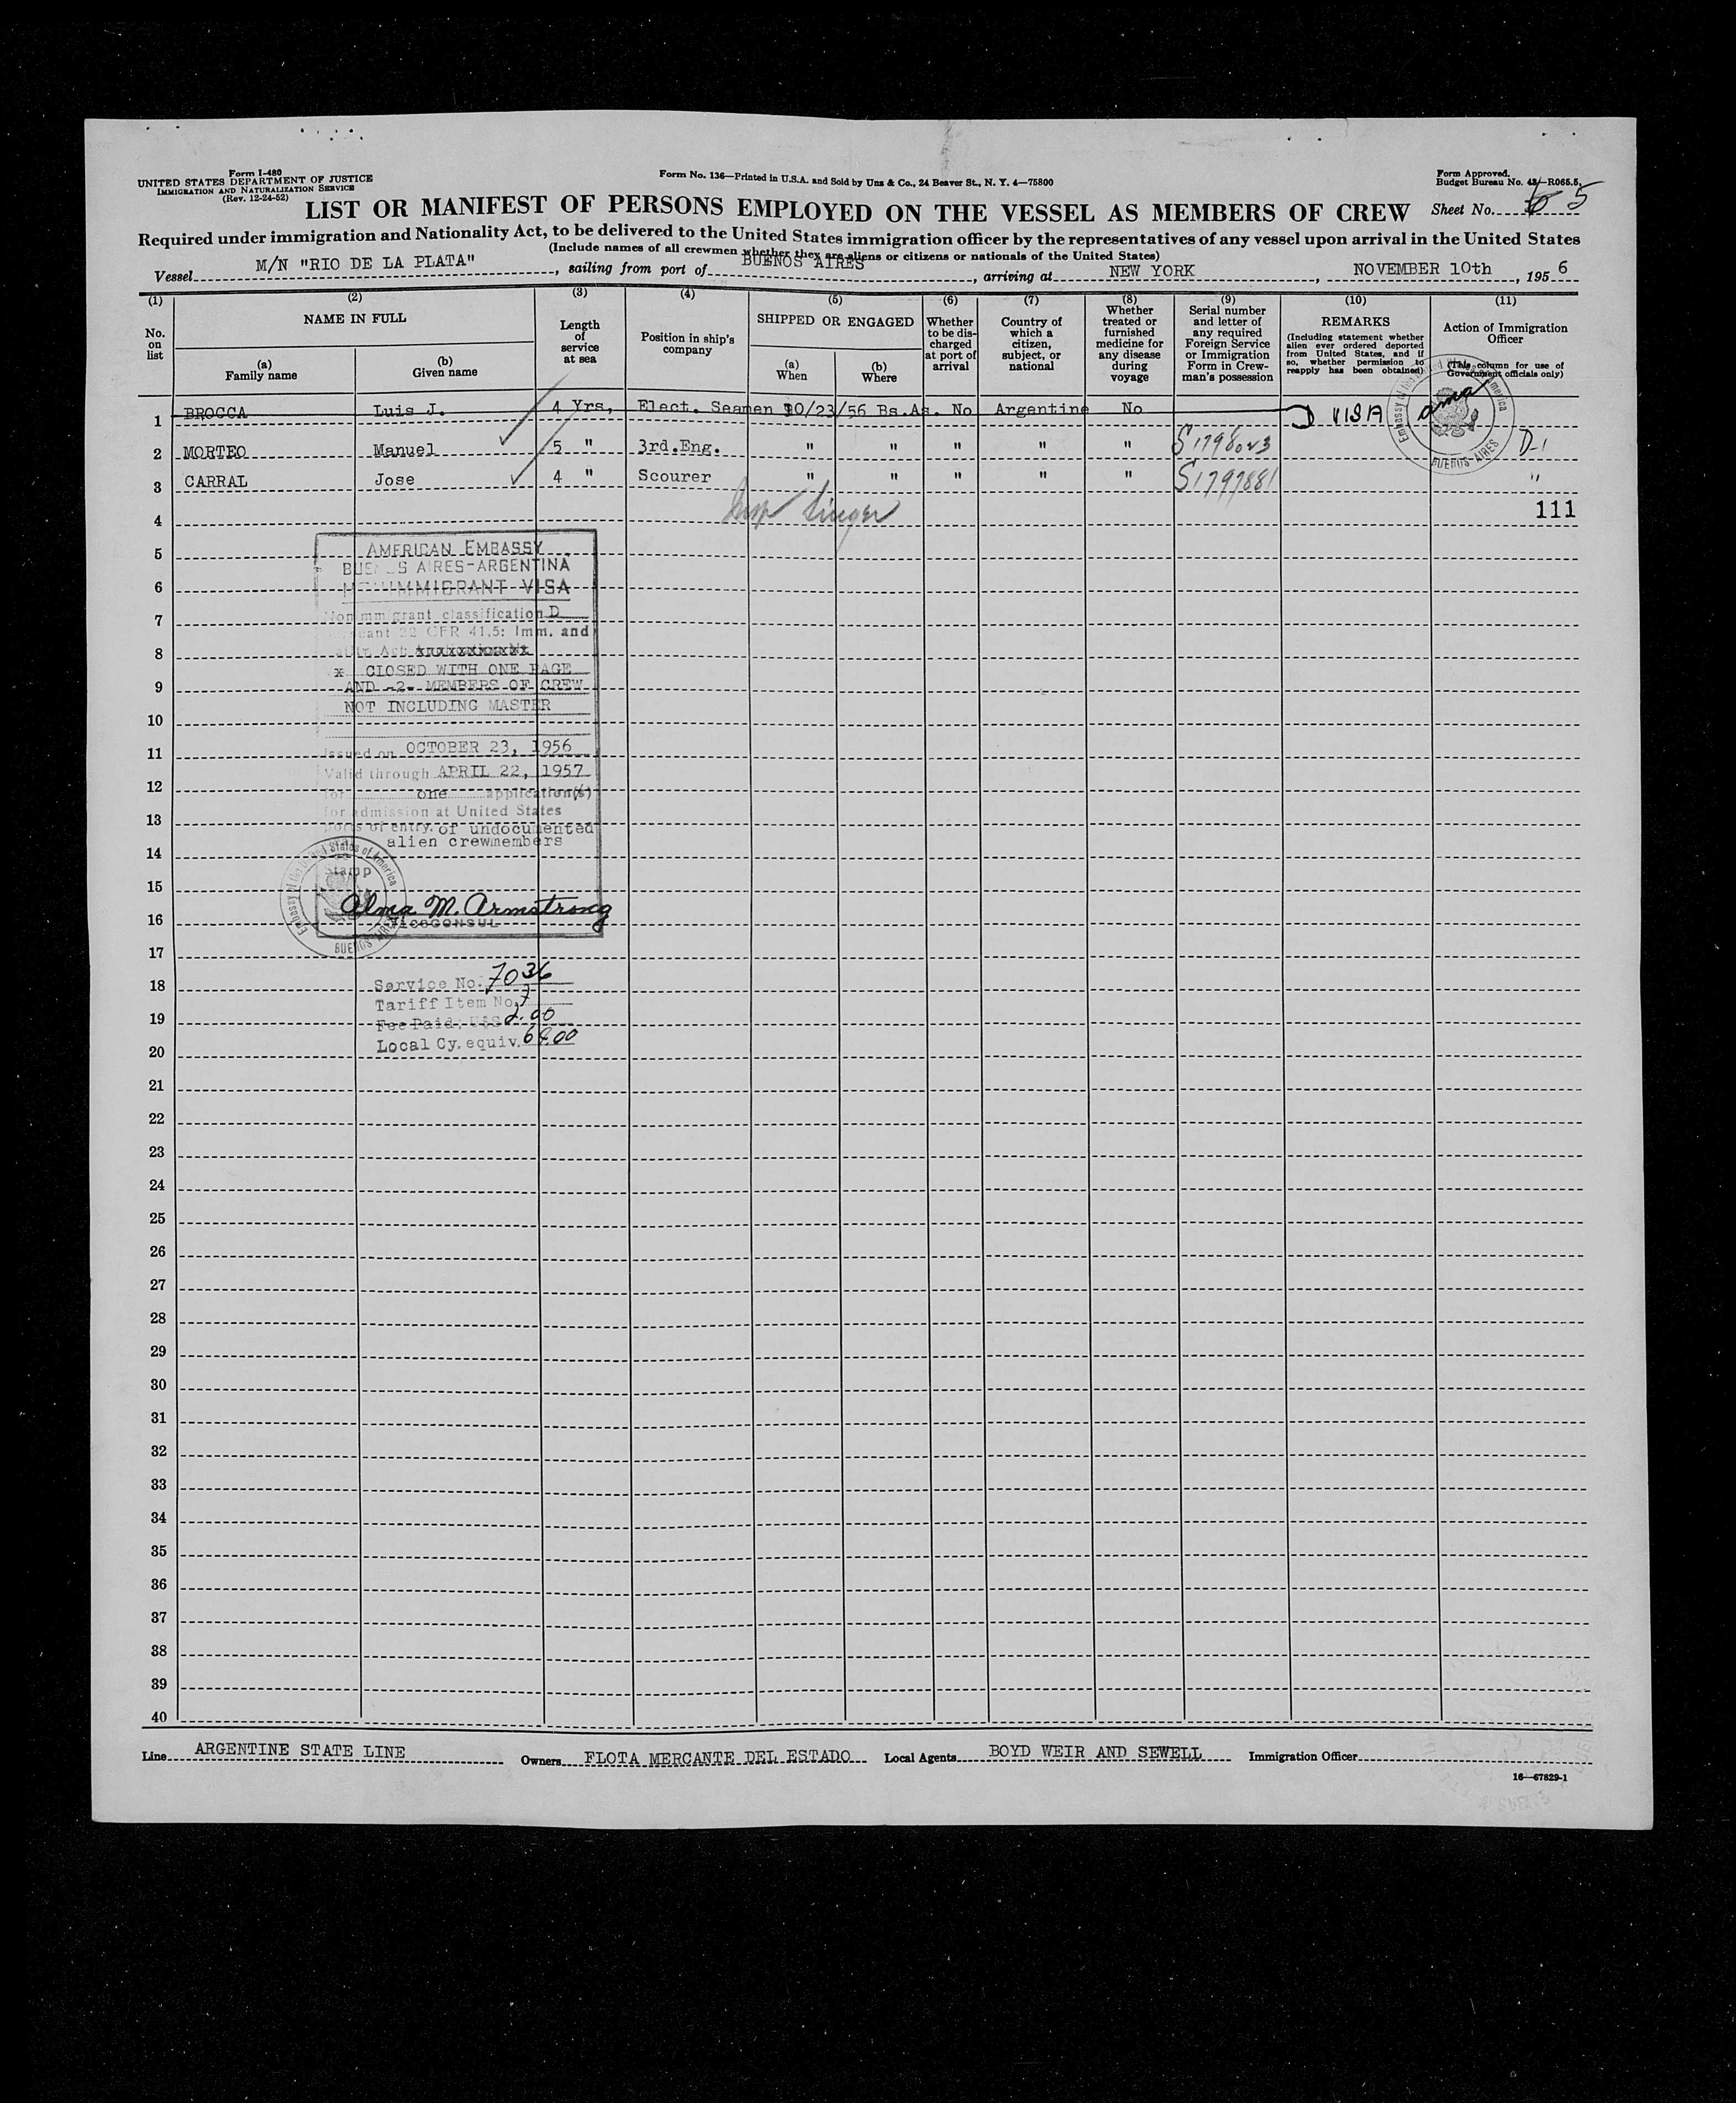 Form I-480
UNITED STATES DEPARTMENT OF JUSTICE
IMMIGRATION AND NATURALIZATION SERVICE
(Rev. 12-24-52)
Form No. 136—Printed in U.S.A. and Sold by Unz & Co., 24 Beaver St., N. Y. 4—75800
Form Approved.
Budget Bureau No. 43—R065.5.
LIST OR MANIFEST OF PERSONS EMPLOYED ON THE VESSEL AS MEMBERS OF CREW
Sheet No. 5
Required under immigration and Nationality Act, to be delivered to the United States immigration officer by the representatives of any vessel upon arrival in the United States
(Include names of all crewmen whether they are aliens or citizens or nationals of the United States)
Vessel M/N "RIO DE LA PLATA", sailing from port of BUENOS AIRES, arriving at NEW YORK, NOVEMBER 10th, 1956
(1) (2) (3) (4) (5) (6) (7) (8) (9) (10) (11)
No. on list
NAME IN FULL
(a) Family name
(b) Given name
Length of service at sea
Position in ship's company
SHIPPED OR ENGAGED
(a) When
(b) Where
Whether to be discharged at port of arrival
Country of which a citizen, subject, or national
Whether treated or furnished medicine for any disease during voyage
Serial number and letter of any required Foreign Service or Immigration Form in Crewman's possession
REMARKS
(Including statement whether alien ever ordered deported from United States, and if so, whether permission to reapply has been obtained)
Action of Immigration Officer
(This column for use of Government officials only)
1 BROCCA Luis J. 4 Yrs, Elect. Seamen 10/23/56 Bs.As. No Argentine No D VISA ama
Embassy of the United States of America
BUENOS AIRES
2 MORTEO Manuel 5 " 3rd.Eng. " " " " " S1798023 D-1
3 CARRAL Jose 4 " Scourer " " " " " S1797881 "
4 111
5
6
7
8
9
10
11
12
13
14
15
16
17
18
19
20
21
22
23
24
25
26
27
28
29
30
31
32
33
34
35
36
37
38
39
40
AMERICAN EMBASSY
BUENOS AIRES-ARGENTINA
NONIMMIGRANT VISA
Nonimmigrant classification D
suant 22 CFR 41.5: Imm. and
x CLOSED WITH ONE PAGE
AND -2- MEMBERS OF CREW
NOT INCLUDING MASTER
Issued on OCTOBER 23, 1956
Valid through APRIL 22, 1957
for one application(s)
for admission at United States
ports of entry. of undocumented
alien crewmembers
Stamp
Embassy of the United States of America
BUENOS AIRES
Alma M. Armstrong
Vice CONSUL
Service No. 7036
Tariff Item No. 7
Fee Paid: U$S 2.00
Local Cy. equiv. 69.00
Line ARGENTINE STATE LINE Owners FLOTA MERCANTE DEL ESTADO Local Agents BOYD WEIR AND SEWELL Immigration Officer
16—67829-1